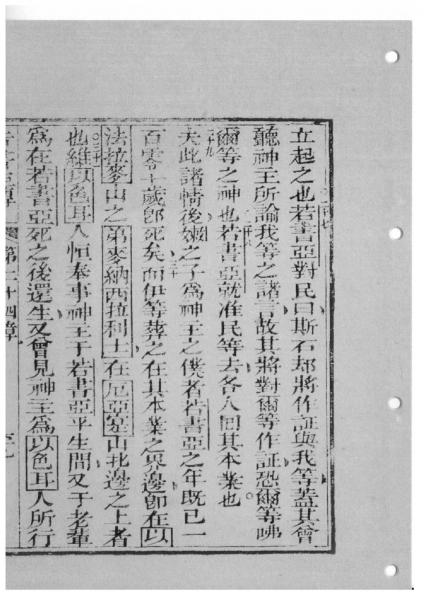 立起之也若書亞對民曰斯石却將作証與我等蓋其曾
聽神王所諭我等之諸言故其將對爾等作証恐爾等咈
爾等之神也若書亞就准民等去各人回其本業也
夫此諸情後嫩之子為神王之僕者若書亞之年既已一
百零十歲卽死矣而伊等葬之在其本業之界邊卽在以
法拉麥山之弟麥納西拉利士在厄亞塞山北邊之上者
也維以色耳人恒奉事神王于若書亞平生間又于老輩
為在若書亞死之後還生又曾見神王為以色耳人所行
第二十四章